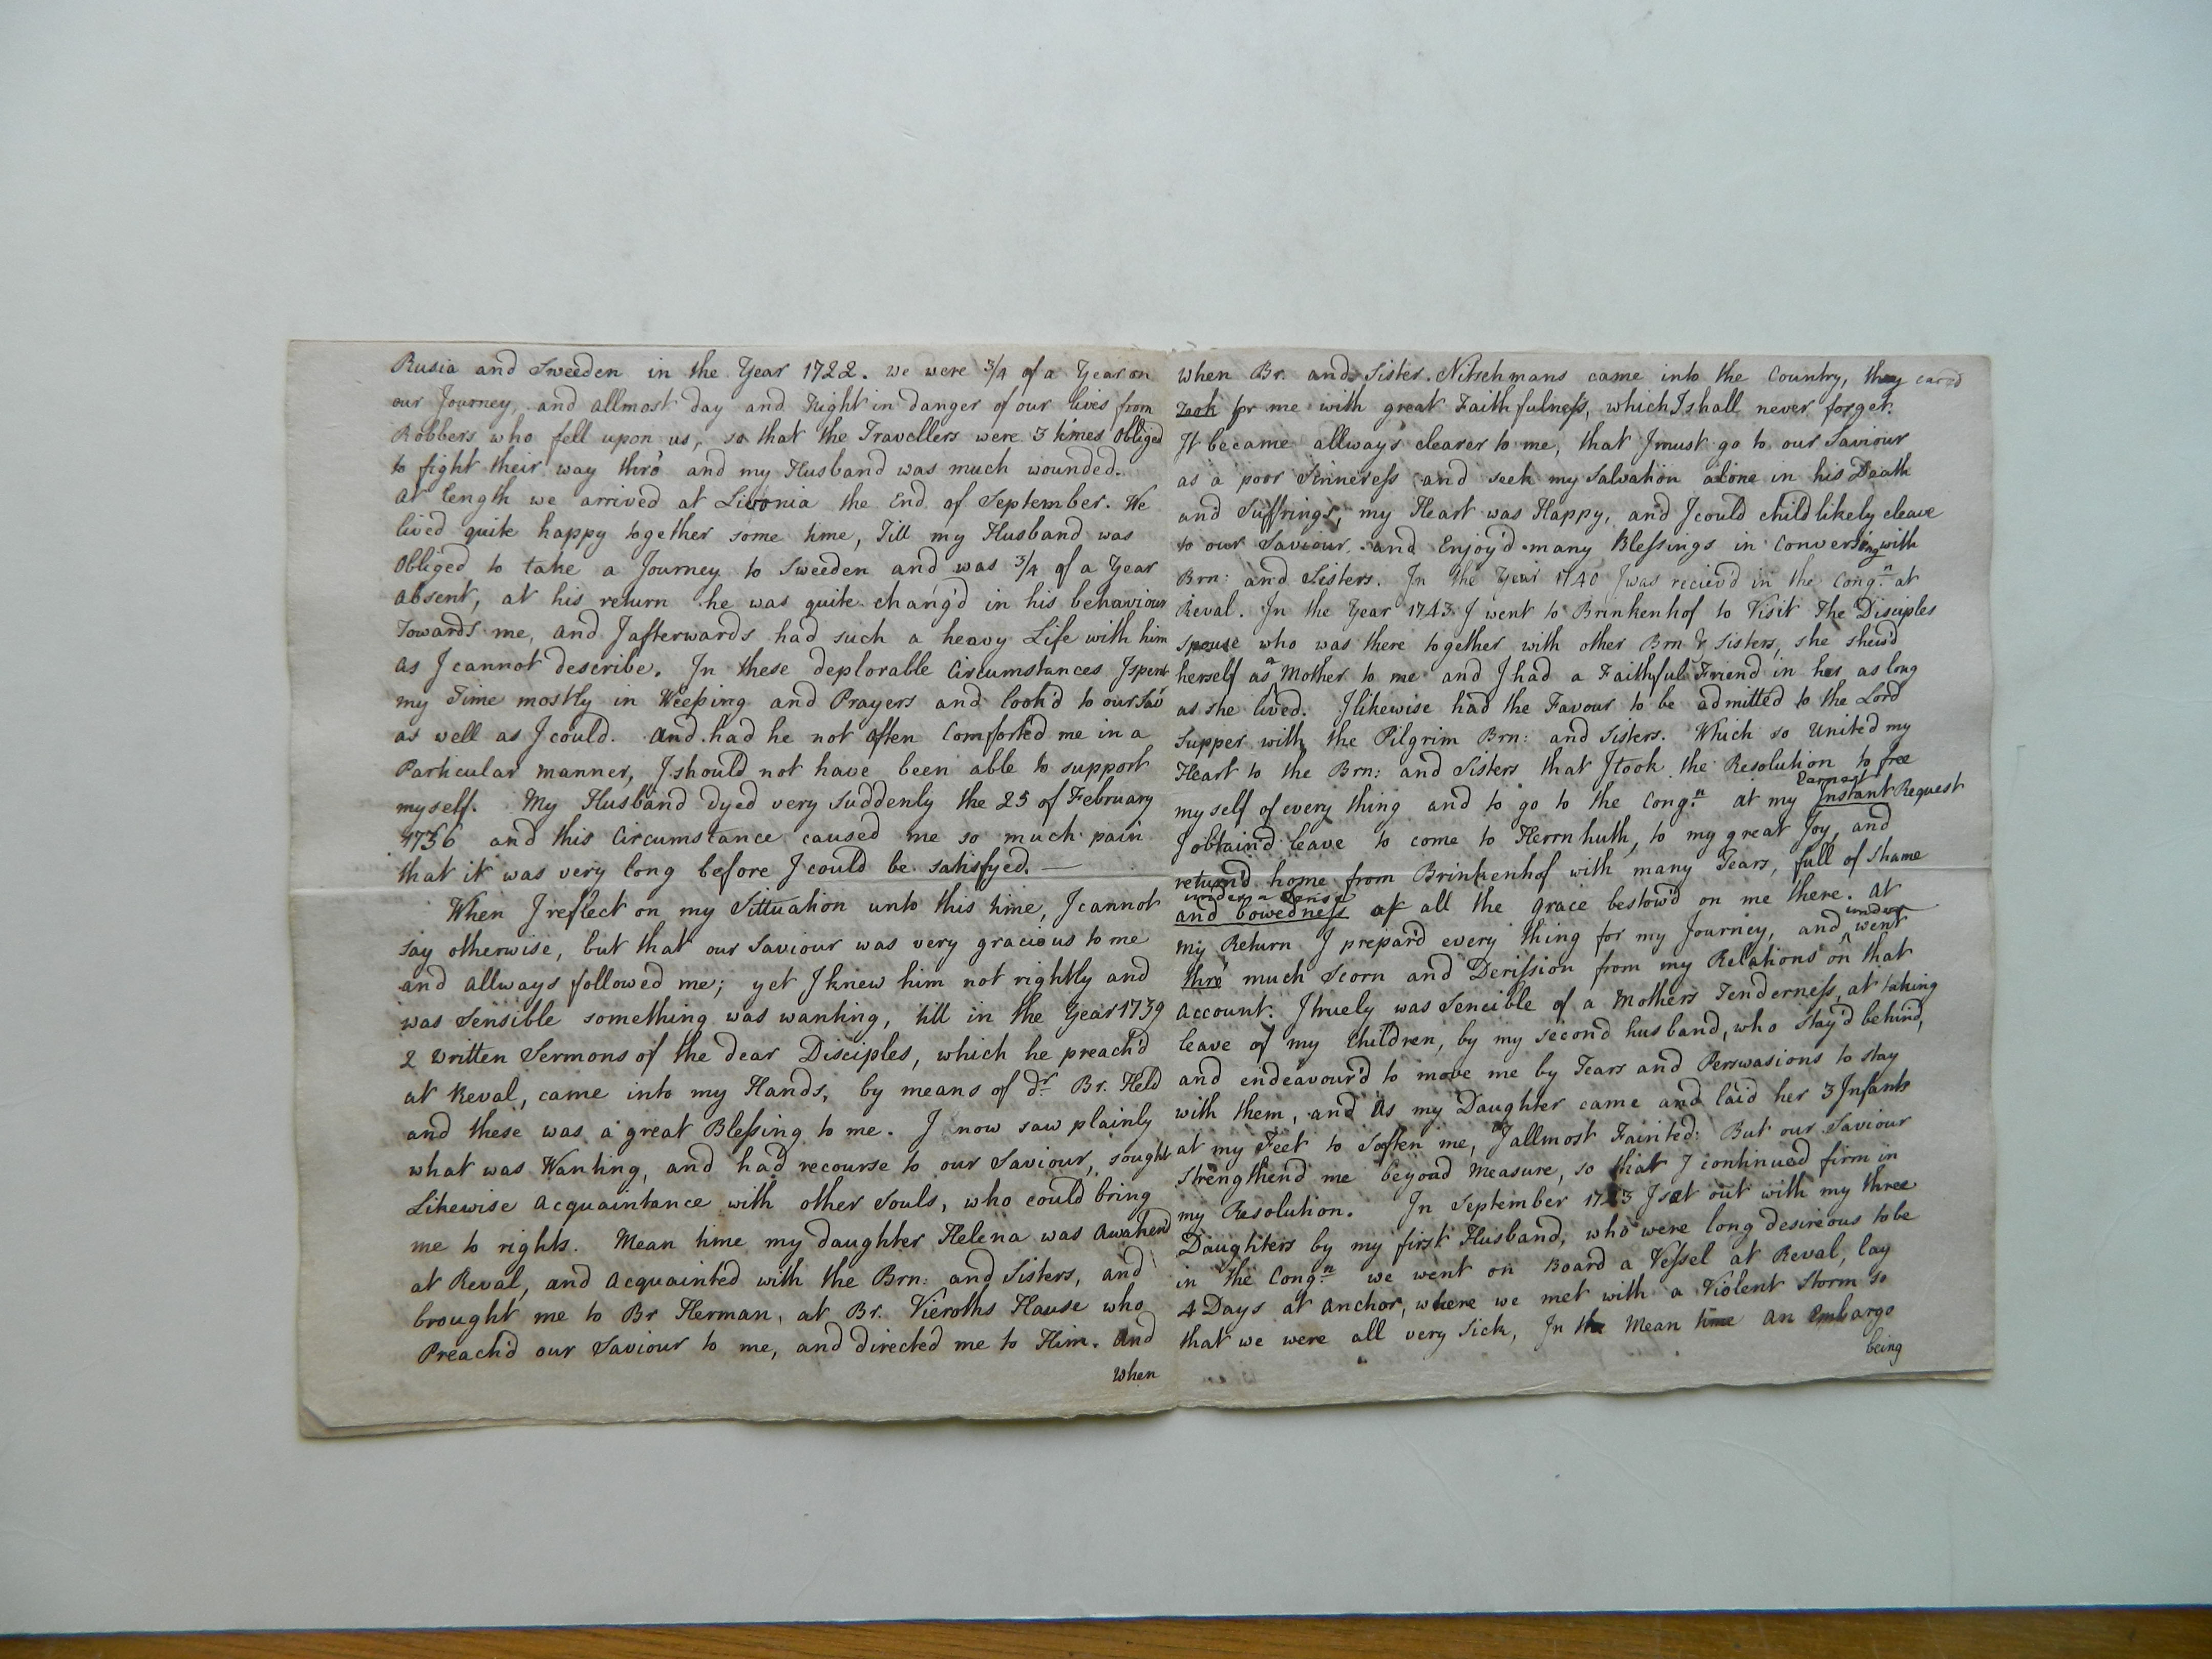 Rusia and Sweeden in the Year 1722. we were 3/4 of a Year on
our Journey, and allmost day and Night in danger of our lives from
Robbers who fell upon us, so that the Travellers were 3 times Obliged
to fight their way thrô and my Husband was much wounded.
at length we arrived at Livonia the End of September. We
lived quite happy together some time, Till my Husband was
Obliged to take a Journey to Sweeden and was 3/4 of a Year
absent, at his return he was quite chang'd in his behaviour
Towards me, and I afterwards had such a heavy Life with him
as I cannot describe. In these deplorable Circumstances I spent
my Time mostly in Weeping and Prayers and look'd to our Sav
as well as I could. And had he not often Comforted me in a
Particular manner, I should not have been able to support
myself. My Husband dyed very suddenly the 25 of February
1736 and this Circumstance caused me so much pain
that it was very long before I could be satisfyed. —
When I reflect on my Sittuation unto this time, I cannot
say otherwise, but that our Saviour was very gracious to me
and allways followed me; yet I knew him not rightly and
was Sensible something was wanting, till in the Year 1739
2 written Sermons of the dear Disciples, which he preach'd
at Reval, came into my Hands, by means of dr. Br. Held
and these was a great Blessing to me. I now saw plainly
what was Wanting, and had recourse to our Saviour, sought
Likewise acquaintance with other Souls, who could bring
me to rights. Mean time my daughter Helena was Awaken'd
at Reval, and acquainted with the Brn: and Sisters, and
brought me to Br Herman, at Br. Vieroths House who
Preach'd our Saviour to me, and directed me to Him. And
When
When Br. and Sister. Nitschmans came into the Country, they car'd
took for me with great Faithfulness, which I shall never forget.
It became allways clearer to me, that I must go to our Saviour
as a poor Sinneress and seek my Salvation alone in his Death
and Suffrings, my Heart was Happy, and I could childlikely cleave
to our Saviour. and Enjoy'd many Blessings in Conversing with
Brn: and Sisters. In the Year 1740 I was reciev'd in the Congn. at
Reval. In the Year 1743 I went to Brinkenhof to Visit The Disciples
Spouse who was there together with other Brn & Sisters, she shew'd
herself as a Mother to me and I had a Faithful Friend in her as long
as she lived. I likewise had the Favour to be admitted to the Lord
Supper with the Pilgrim Brn: and Sisters. Which so United my
Heart to the Brn: and Sisters that I took the Resolution to free
myself of every thing and to go to the Congn. at my Earnest Instant Request
I obtain'd leave to come to Herrnhuth, to my great Joy, and
return'd home from Brinkenhof with many Tears, full of Shame
under a Sense
and bowedness of all the grace bestow'd on me there. At
my Return I prepar'd every thing for my Journey, and under went
thrô much Scorn and Derission from my Relations on that
account. I truely was Sencible of a Mothers Tenderness, at taking
leave of my Children, by my second husband, who stay'd behind,
and endeavour'd to move me by Tears and Perswasions to stay
with them, and as my Daughter came and laid her 3 Infants
at my Feet to Soften me, I allmost Fainted: But our Saviour
Strengthen'd me beyond Measure, so that I continued firm in
my Resolution. In September 1743 I set out with my three
Daughters by my first Husband, who were long desireous to be
in the Congn. we went on Board a Vessel at Reval, lay
4 Days at anchor, where we met with a Violent Storm so
that we were all very Sick, In the Mean time An Embargo
being